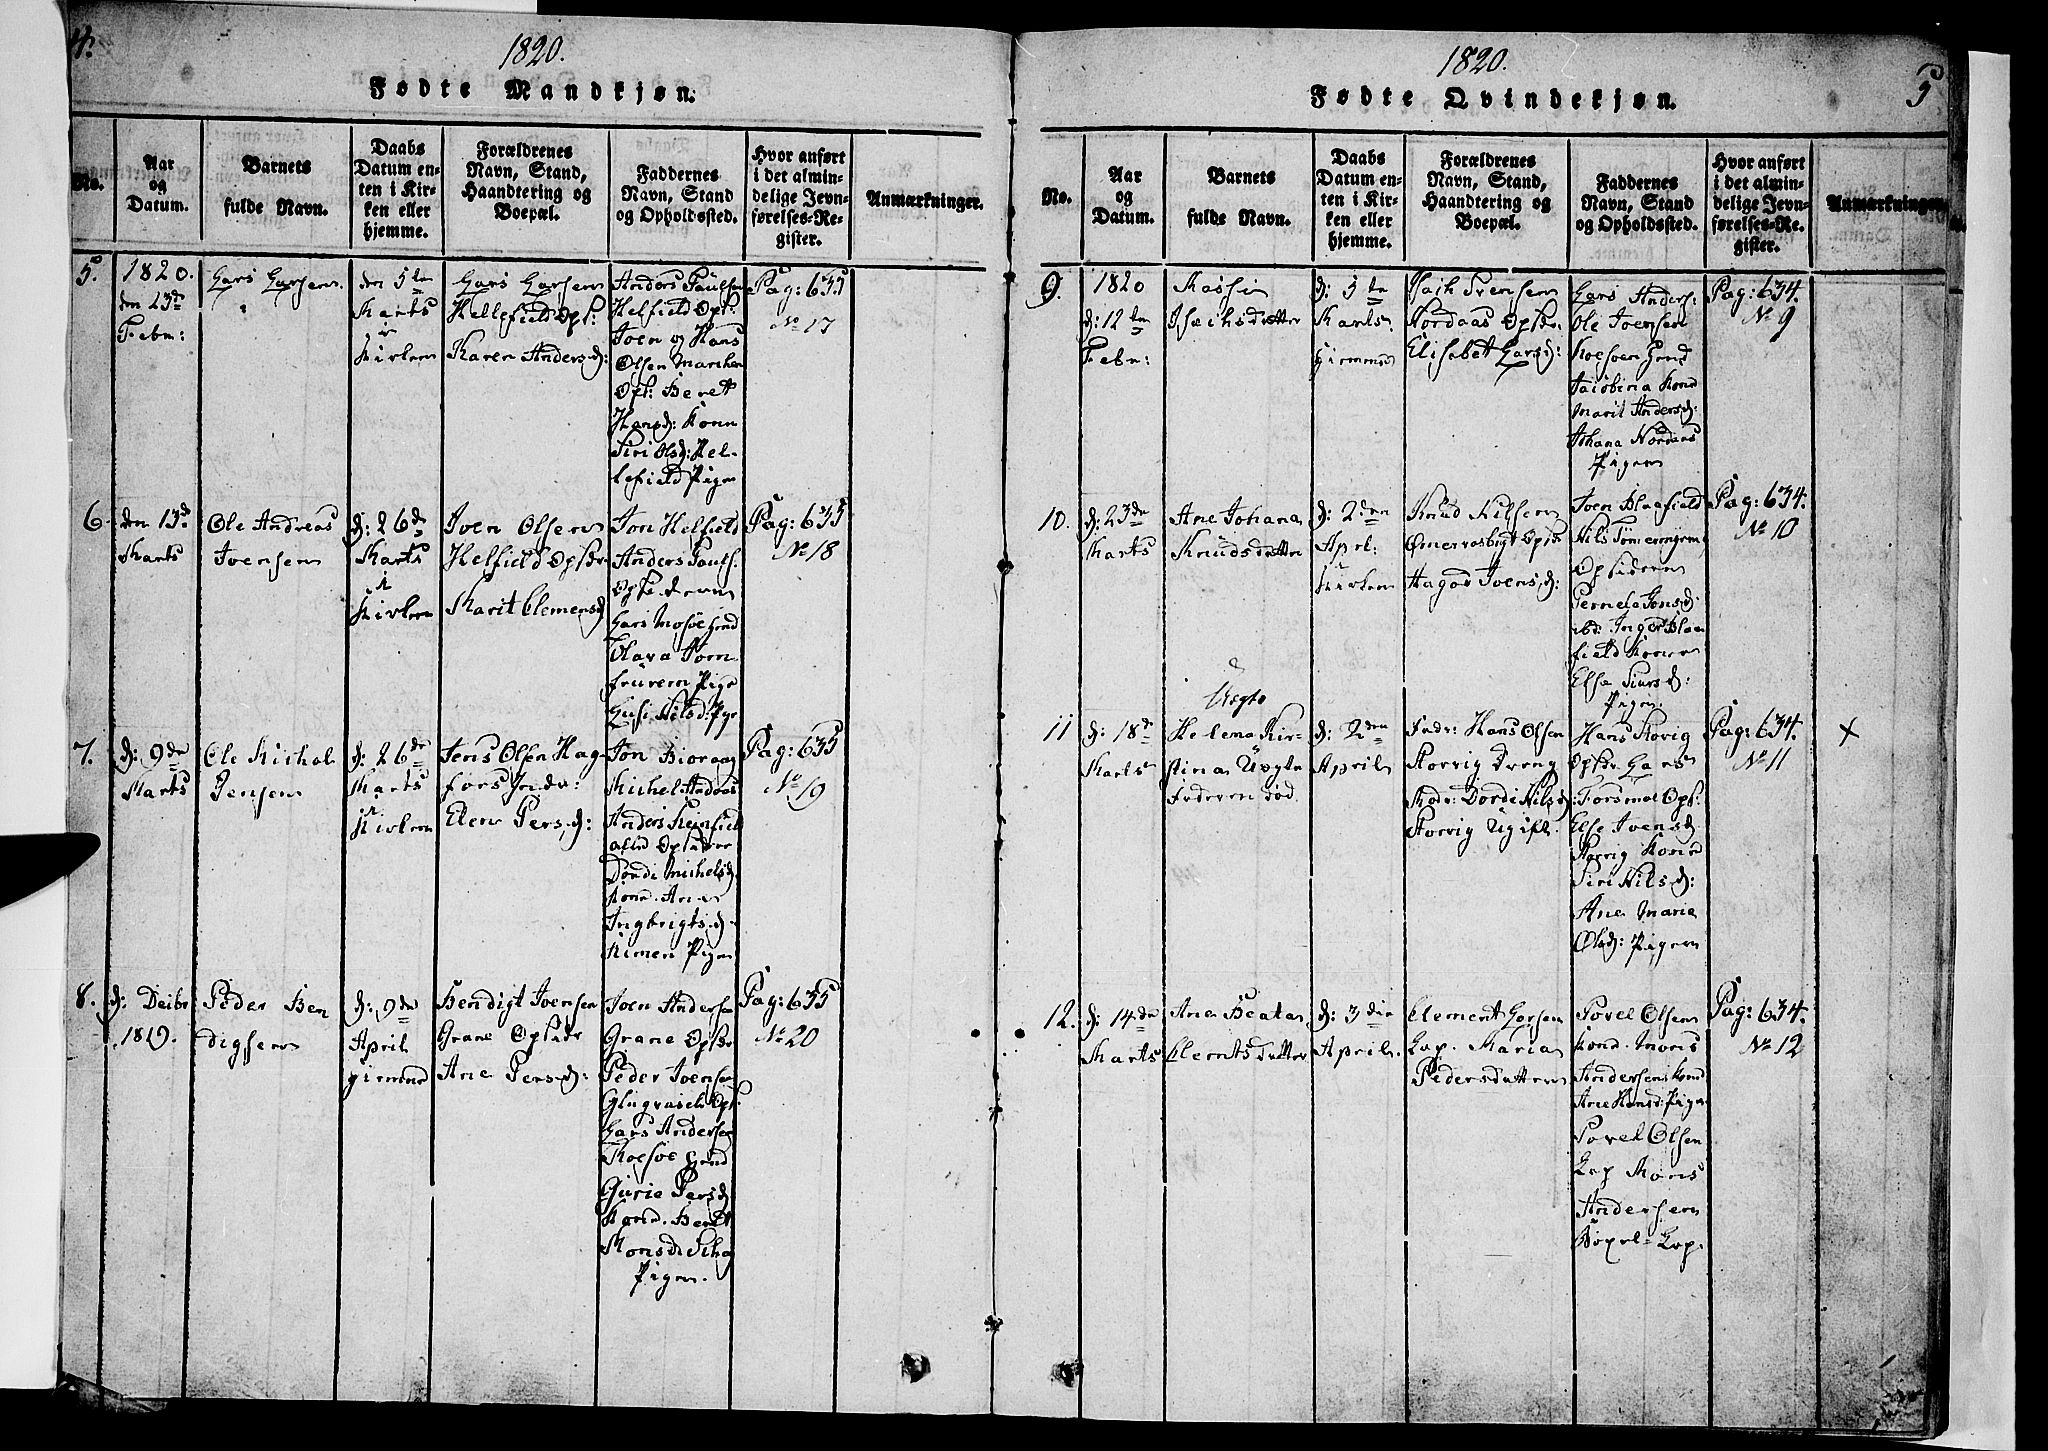 4.
1820.
Fødte Mandkjøn.
No.
Aar
og
Datum.
Barnets
fulde Navn.
Daabs
Datum en-
ten i Kir-
ken eller
hjemme.
Forældrenes
Navn, Stand,
Haandtering og
Boepæl.
Faddernes
Navn, Stand
og Opholdssted.
Hvor anført
i det almin-
delige Jevn-
førelses-Re-
gister.
Anmærkninger.
5.
1820.
den 23de
Febr:
Lars Larsen
den 5te
Marts
i
Kirken
Lars Larsen
Hellefield Ops:
Karen Andersd:
Anders Paulsen
Helfield Ops:
Joen og Hans
Olsen Marchen
Ops: Beret
Hansd: Kone
Siri Olsd: Hel-
lefield Pige
Pag: 635
No 17
6.
den 13de
Marts
Ole Andreas
Joensen
d: 26de
Marts
i
Kirken
Joen Olsen
Helfield Opsdr
Marit Clemensd
Jon Helfield
Anders Pauls:
Opsiderne
Lars Mosøe
Olava
Pige
Nilsd: Pige
Pag: 635
No 18
7.
d: 9de
Marts
Ole Michal
Jensen
d: 26de
Marts
i
Kirken
Jens Olsen Hag-
fors Inder:
Elen Persd:
Jon Bioraag
Michel Andreas
Anders
alle Opsidere
Dordi Michelsd
Kone. Ane
Ingbrigtsd:
Pige
Pag: 635
No 19
8.
d: Decbr
1819.
Peder Ben
digsen
d: 9de
April
hjemme
Bendigt Joensen
Grane Opsidr
Ane Persd:
Joen Andersen
Grane Opsdr
Peder Joensen
Ops:
Lars Andersen
Gurie Persd
Kone. Beret
Monsd
Pigen.
Pag: 635
No 20
1820.
5
Fødte Qvindekjøn.
No.
Aar
og
Datum.
Barnets
fulde Navn.
Daabs
Datum en-
ten i Kir-
ken eller
hjemme.
Forældrenes
Navn, Stand,
Haandtering og
Boepæl.
Faddernes
Navn, Stand
og Opholdssted.
Hvor anført
i det almin-
delige Jevn-
førelses-Re-
gister.
Anmærkninger
9.
1820
d: 12te
Febr:
Isachsdatter
d: 5te
Marts
hjemme
Isach Svensen
Nordaas Opsdr
Elisabet Larsd:
Lars Anders:
Ole Joensen
Jacobina Kone
Marit Andersd:
Johana Nordaas
Pigen
Pag: 634.
No 9
10.
d: 23de
Marts
Ane Johana
Knudsdatter
d: 2den
Apri:
Kirken
Knud Nilsen
Opsdr
Joensd:
Joen Blaafield
Nils
Opsidere
Pernela Jonsd:
ibd: Inger Blaa
field Koner
Else Siursd:
Pigen.
Pag: 634.
No 10
Uegte
11
d: 18de
Marts
Helena Kir-
stina Uegte
Faderen død
d: 2den
April
Fadr: Hans Olsen
Storvig Dreng
Modr: Dordi Nilsd
Storvig Ugift.
Hans Storvig
Opsdr Lars
Forsmoe Ops:
Else Joensd
Storvig Kone
Siri Nilsd:
Ane Marie
Olsd: Pigen
Pag: 634.
No 11
x
12.
d: 14de
Marts
Ane Beata
Clemtsdatter
d: 3die
April
Clement Larsen
Lap. Maria
Pedersdatter
Povel Olsen
Kone. Mons
Andersens Kone
Ane Hansd: Pige
Povel Olsen
Lap Mons
Andersen
Lap.
Pag: 634.
No 12